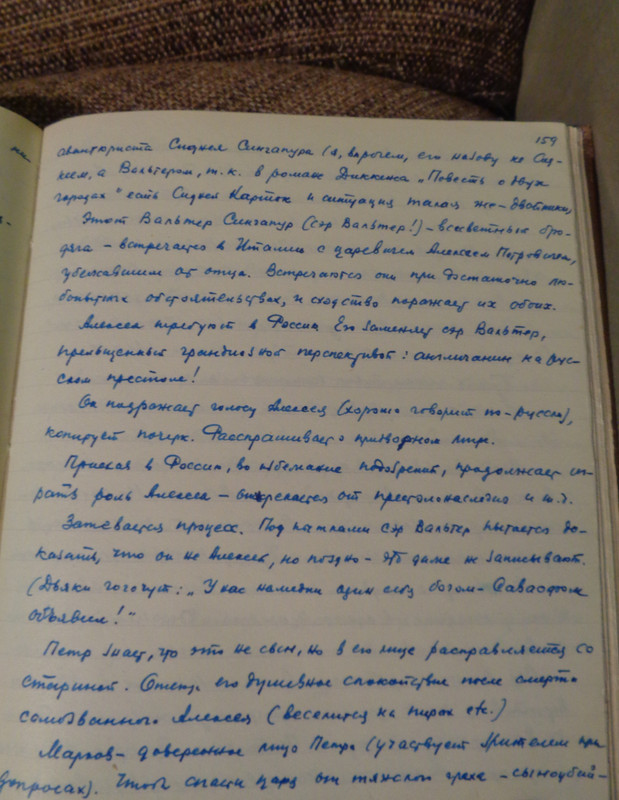 159
авантюриста Сиднея Сингапура (я, впрочем, его назову не Сид-
неем, а Вальтером, т.к. в романе Диккенса „Повесть о двух
городах" есть Сидней Картон и ситуация такая же - двойники,
Этот Вальтер Сингапур (сэр Вальтер!) - всесветный бро-
дяга - встречается в Италии с царевичем Алексеем Петровичем,
убежавшим от отца. Встречаются они при достаточно лю-
бопытных обстоятельствах, и сходство поражает их обоих.
Алексея требуют в Россию Его заменяет сэр Вальтер,
прельщенный грандиозной перспективой: англичанин на рус-
ском престоле!
Он подражает голосу Алексея (хорошо говорит по-русски),
копирует почерк. Расспрашивает о придворном мире.
Приехав в Россию, во избежание подозрений, продолжает иг-
рать роль Алексея - отрекается от престолонаследия и т.д.
Затевается процесс. Под пытками сэр Вальтер пытается до-
казать, что он не Алексей, но поздно - это даже не записывают.
(Дьяки гогочут: „У нас намедни один себя богом-Саваофом
объявил!"
Петр знает, что это не сын, но в его лице расправляется со
стариной. Отсюда его душевное спокойствие после смерти
самозванного Алексея (веселится на пирах etc.)
Марков - доверенное лицо Петра (участвует при
допросах). Чтобы спасти царя от тяжкого греха - сыноубий-